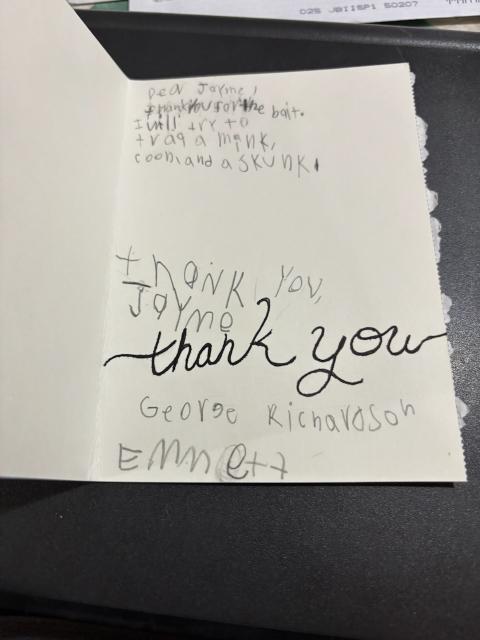 025 JBIISP1 50207
Dear Jayme,
thank you for the bait.
I will try to
trap a mink,
coon, and a skunk.
thank you,
Jayme
thank you
George Richardson
Emmett